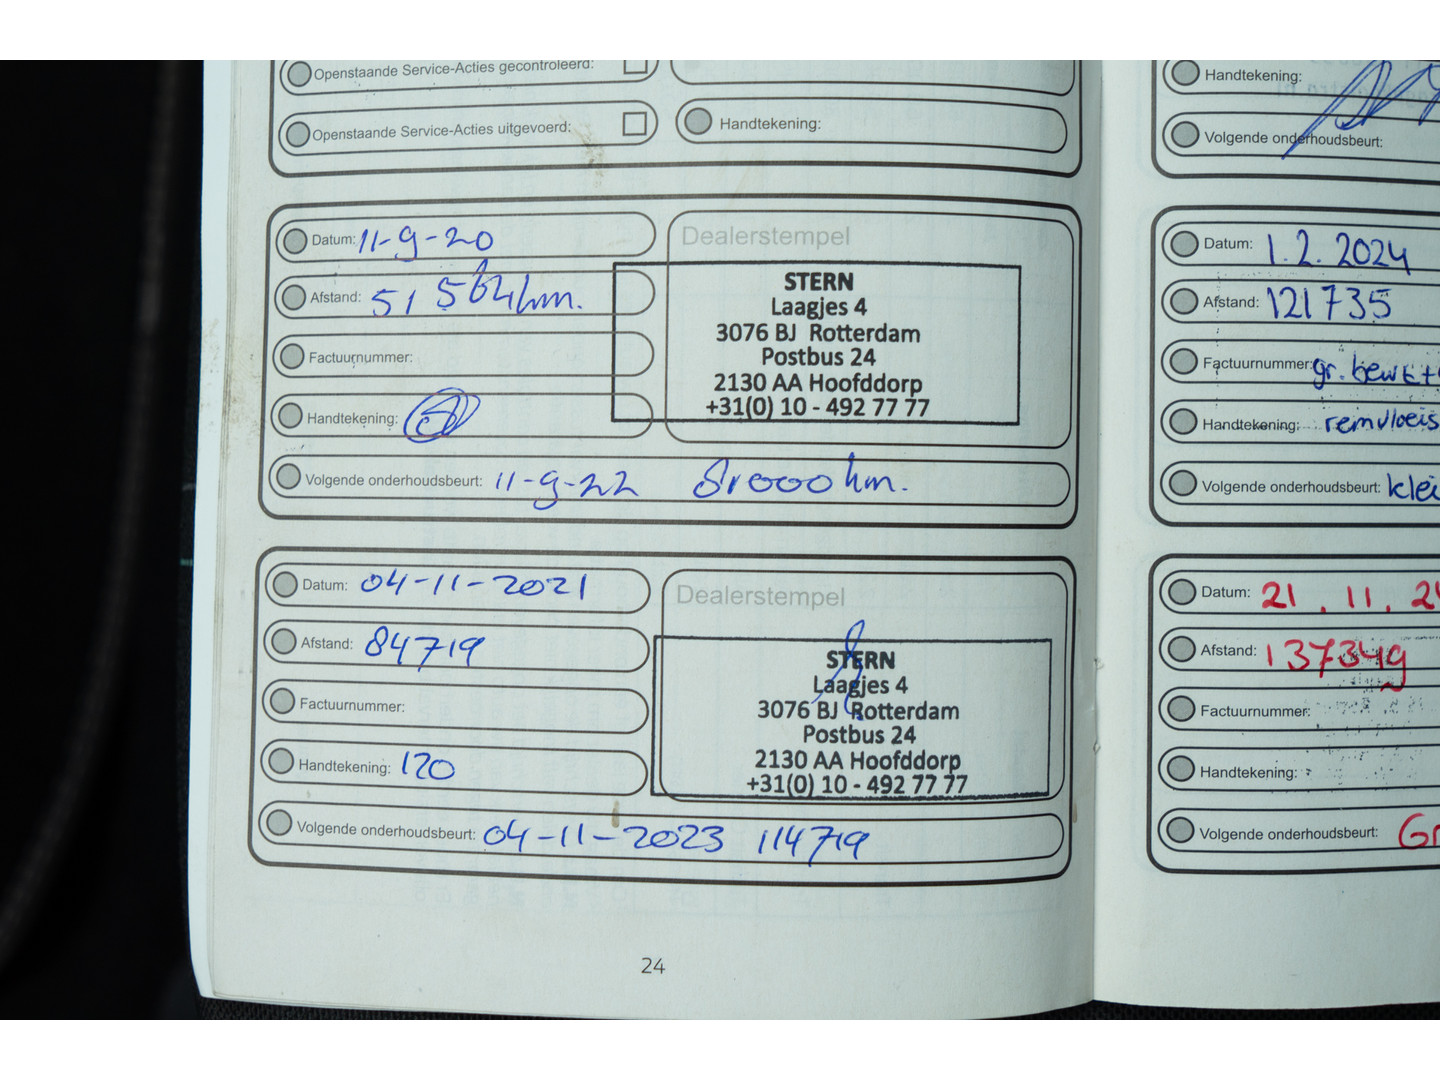 Openstaande Service-Acties gecontroleerd:
Openstaande Service-Acties uitgevoerd:
Handtekening:
Datum: 11-9-20
Afstand: 51 564 km.
Factuurnummer:
Handtekening:
Volgende onderhoudsbeurt: 11-9-22 81000 km.
Dealerstempel
STERN
Laagjes 4
3076 BJ Rotterdam
Postbus 24
2130 AA Hoofddorp
+31(0) 10 - 492 77 77
Datum: 04-11-2021
Afstand: 84719
Factuurnummer:
Handtekening: 120
Volgende onderhoudsbeurt: 04-11-2023 114719
Dealerstempel
STERN
Laagjes 4
3076 BJ Rotterdam
Postbus 24
2130 AA Hoofddorp
+31(0) 10 - 492 77 77
24
Handtekening:
Volgende onderhoudsbeurt:
Datum: 1.2.2024
Afstand: 121735
Factuurnummer: gr.
Handtekening: remvloeis
Volgende onderhoudsbeurt: klei
Datum: 21.11.24
Afstand: 137349
Factuurnummer:
Handtekening:
Volgende onderhoudsbeurt: Gr